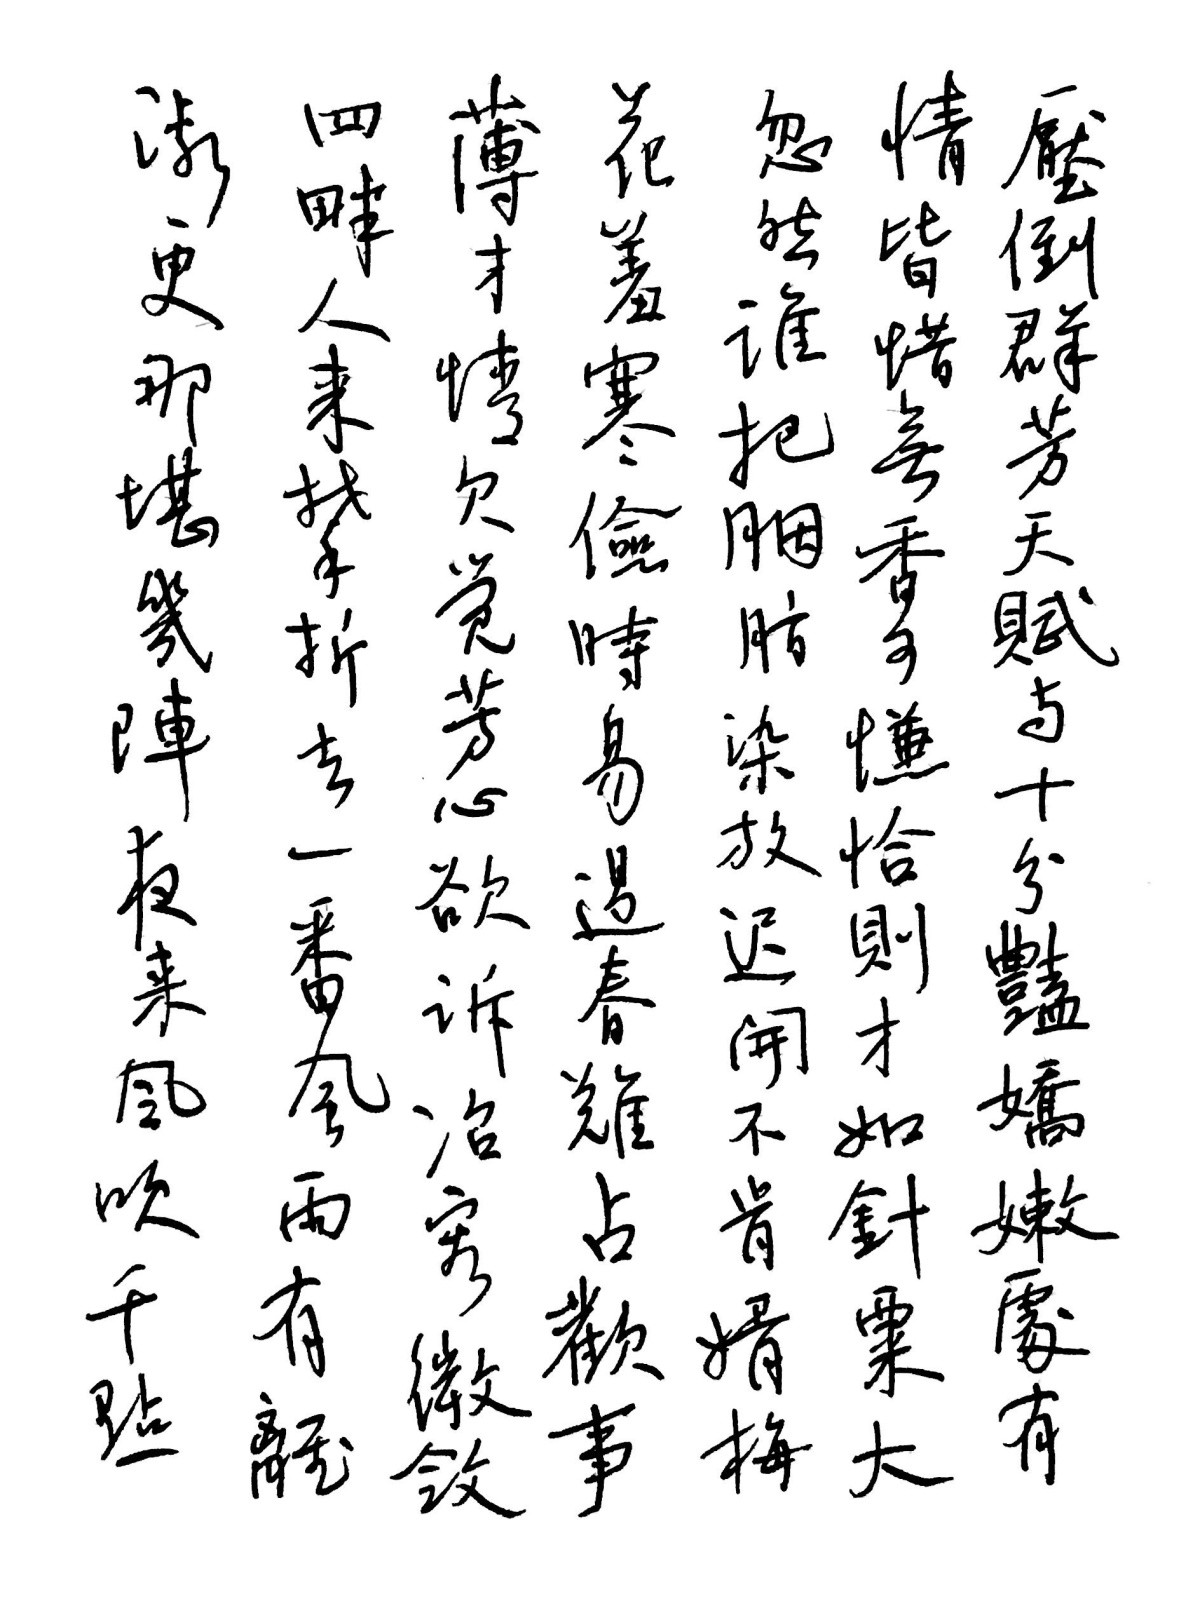 壓倒群芳天賦与十分豔嬌嫩處有
情皆惜無香可慊恰則才如針粟大
忽然谁把胭脂染放迟開不肯婿梅
花羞寒儉時易過春難占歡事
薄才情欠觉芳心欲诉冶容微敛
四畔人来攀折去一番風雨有離
漸更那堪幾陣夜来風吹千點